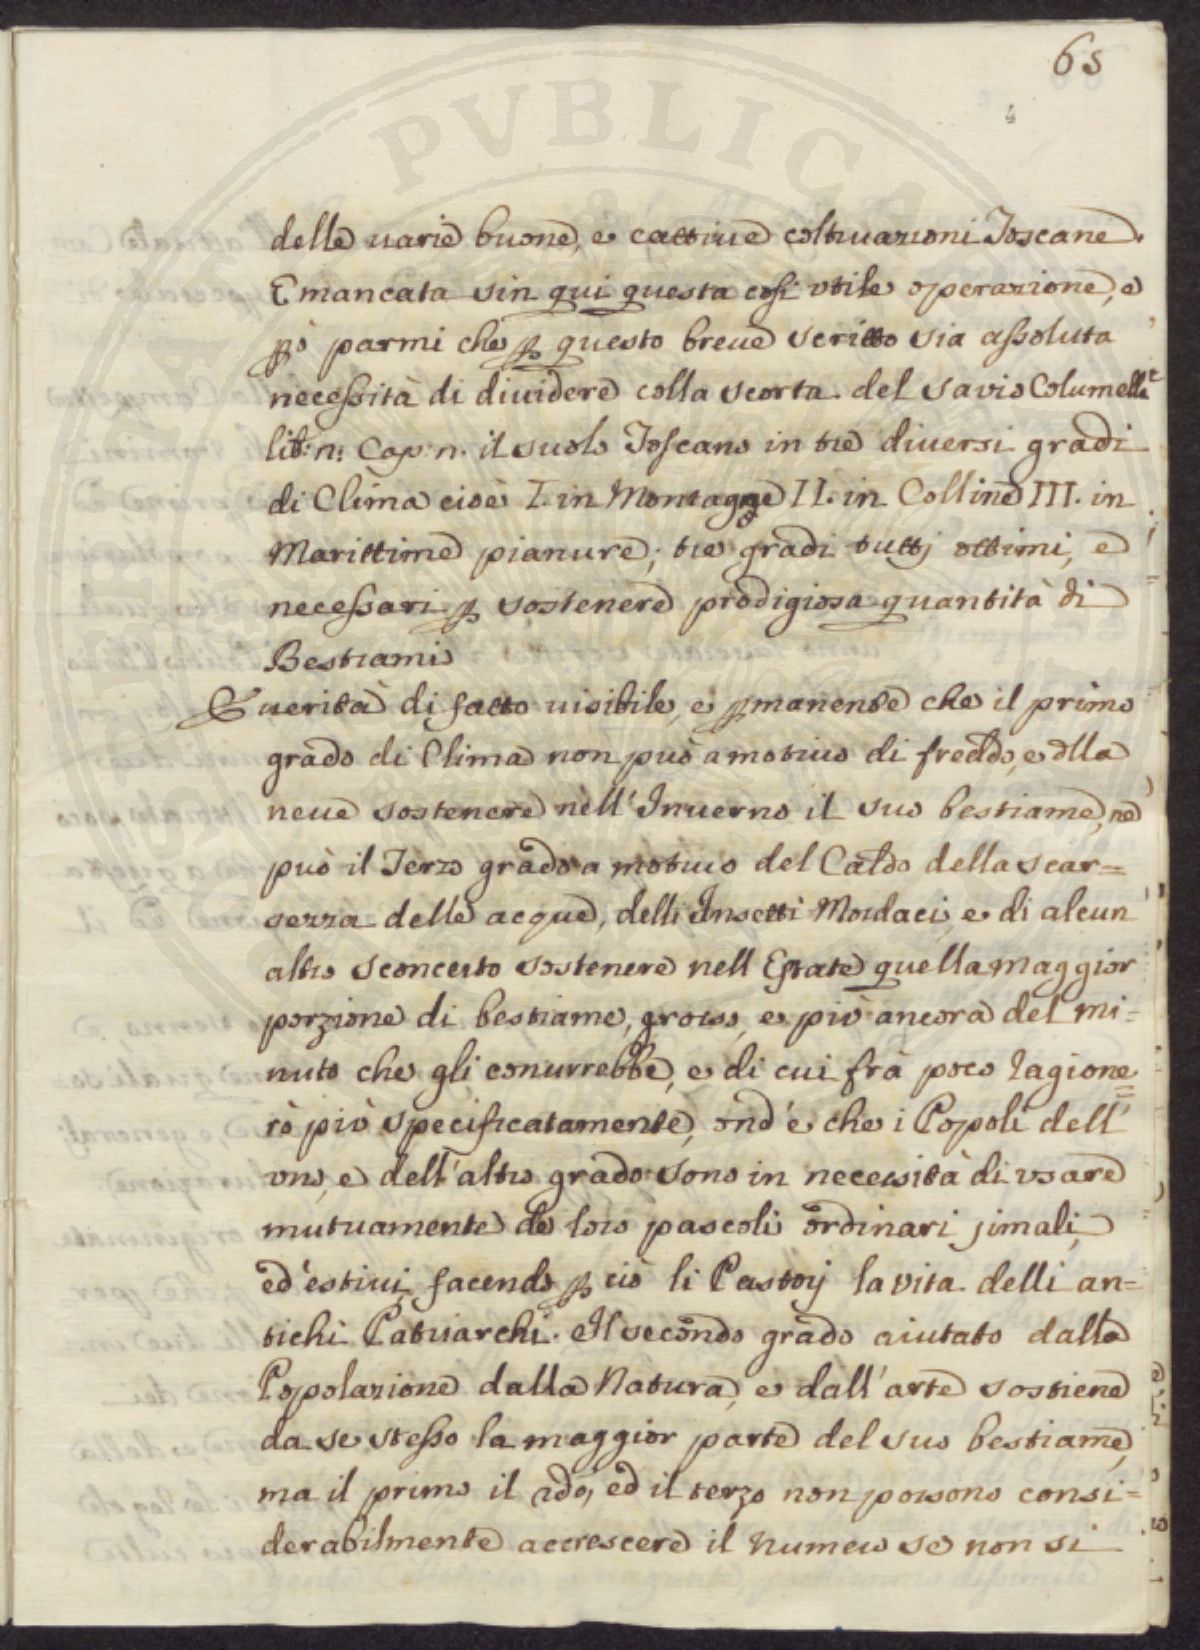 65
4
PVBLICAE
delle uarie buone, e cattiue coltiuazioni Toscane.
È mancata sin qui questa cosi vtile operazione, e
però parmi che per questo breue scritto sia assoluta
necessità di diuidere colla scorta del savio Columella
lib: n: Cap: n. il suolo Toscano in tre diuersi gradi
di Clima cioè I. in Montagne II. in Colline III. in
Marittime pianure; tre gradi tuttj ottimi, e
necessari per sostenere prodigiosa quantità di
Bestiami
È uerità di fatto uisibile, e permanente che il primo
grado di Clima non può a motiuo di freddo, e della
neue sostenere nell'Inuerno il suo bestiame, nè
può il Terzo grado a motiuo del Caldo della scar=
sezza delle acque, delli Insetti Mordaci, e di alcun
altro sconcerto sostenere nell Estate quella maggior
porzione di bestiame, grosso, e più ancora del mi=
nuto che gli conurrebbe, e di cui frà poco ragione=
rò più specificatamente, ond'è che i Popoli dell'
uno, e dell'altro grado sono in necessità di vsare
mutuamente de loro pascoli ordinari jimali,
ed'estiui, facendo per ciò li Pastorj la vita delli an=
tichi Patriarchi. Il secondo grado aiutato dalla
Popolazione dalla Natura, e dall'arte sostiene
da se stesso la maggior parte del suo bestiame,
ma il primo il 2do, ed il terzo non possono consi=
derabilmente accrescere il numero se non si